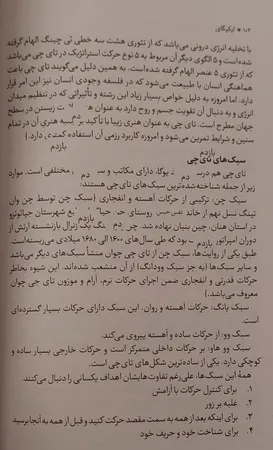 ۱۰۲ • ایکیگای
با تخلیه انرژی درونی می‌باشد که از تئوری هشت سه خطی ئی چینگ الهام گرفته
شده است و ۵ الگوی دیگر آن مربوط به ۵ نوع حرکت استراتژیک در تای چی می‌باشد
که از تئوری ۵ عنصر الهام گرفته شده‌است. به همین دلیل می‌گویند تای چی باعث
هماهنگی انسان با طبیعت می‌شود که در فلسفه وجودی انسان نیز این امر قرار
دارد. اما امروزه به دلیل خواص بسیار زیاد این رشته و تأثیراتی که در تنظیم میدان
انرژی و به دنبال آن تقویت جسم و روح دارد به عنوان هنر زیستن در سطح
جهان مطرح است. تای چی به عنوان هنری زیبا با ترکیب هنری آن در تمام
سنین و شرایط تمرین می شود و امروزه کاربرد رزمی آن استفاده کمتری دارد.)
یازدم
سبک‌های تای‌چی
تای‌چی هم درست یوگا، دارای مکاتب و مختلفی است. موارد
زیر از جمله شناخته‌شده‌ترین سبک‌های تای‌چی هستند:
سبک چن: ترکیبی از حرکات آهسته و انفجاری (سبک چن توسط چن وان
تینگ نسل نهم از خاندان روستای شهرستان جیائوتزو
در استان هنان، چین بنیان نهاده شد. چن وان‌تینگ یک ژنرال بازنشسته ارتش از
دوران امپراتور بود که طی سال‌های ۱۶۰۰ الی ۱۶۸۰ میلادی می‌زیسته است.
طبق یکی از روایت‌ها، سبک چن از تای چی چوان منشأ سبک‌های دیگر می‌باشد
و سایر سبک‌ها (به جز سبک وودانگ) از آن منشعب شده‌اند. این شیوه بخاطر
حرکات قدرتی و انفجاری ضمن اجرای حرکات نرم، آرام و موزون تای چی چوان
معروف می‌باشد.)
سبک یانگ: حرکات آهسته و روان. این سبک دارای حرکات بسیار گسترده‌ای
است.
سبک وو: از حرکات ساده و آهسته پیروی می‌کند.
سبک وو هاو: بر حرکات داخلی متمرکز است و حرکات خارجی بسیار ساده و
کوچکی دارد. یکی از ساده‌ترین شکل‌های تای چی است.
همهٔ این سبک‌ها، علی‌رغم تفاوت‌هایشان اهداف یکسانی را دنبال می‌کنند.
۱. برای کنترل حرکات با آرامش
۲. غلبه بر زور
۳. برای اینکه بعد از همه به سمت مقصد حرکت کنید و قبل از همه به آنجا برسید
۴. برای شناخت خود و حریف خود